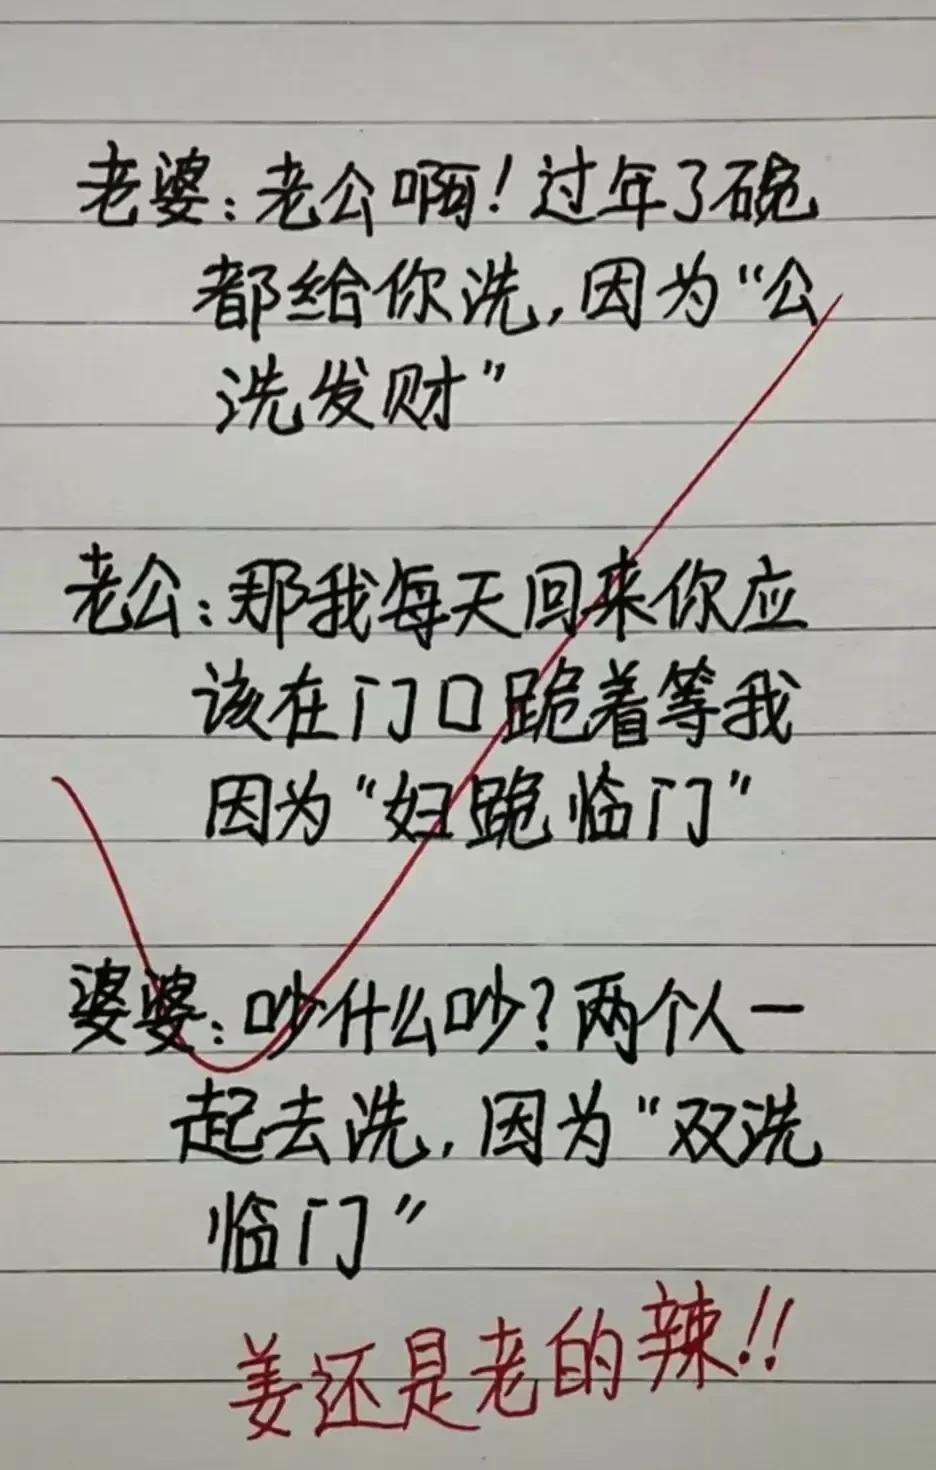 老婆：老公啊！过年了碗
都给你洗，因为“公
洗发财”
老公：那我每天回来你应
该在门口跪着等我
因为“妇跪临门”
婆婆：吵什么吵？两个人一
起去洗，因为“双洗
临门”
姜还是老的辣!!